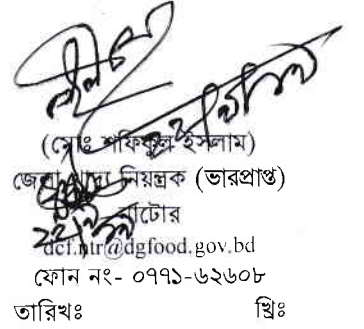 (মোঃ শফিকুল ইসলাম)
জেলা খাদ্য নিয়ন্ত্রক (ভারপ্রাপ্ত)
নাটোর
dcf.ntr@dgfood.gov.bd
ফোন নং- ০৭৭১-৬২৬০৮
তারিখঃ খ্রিঃ